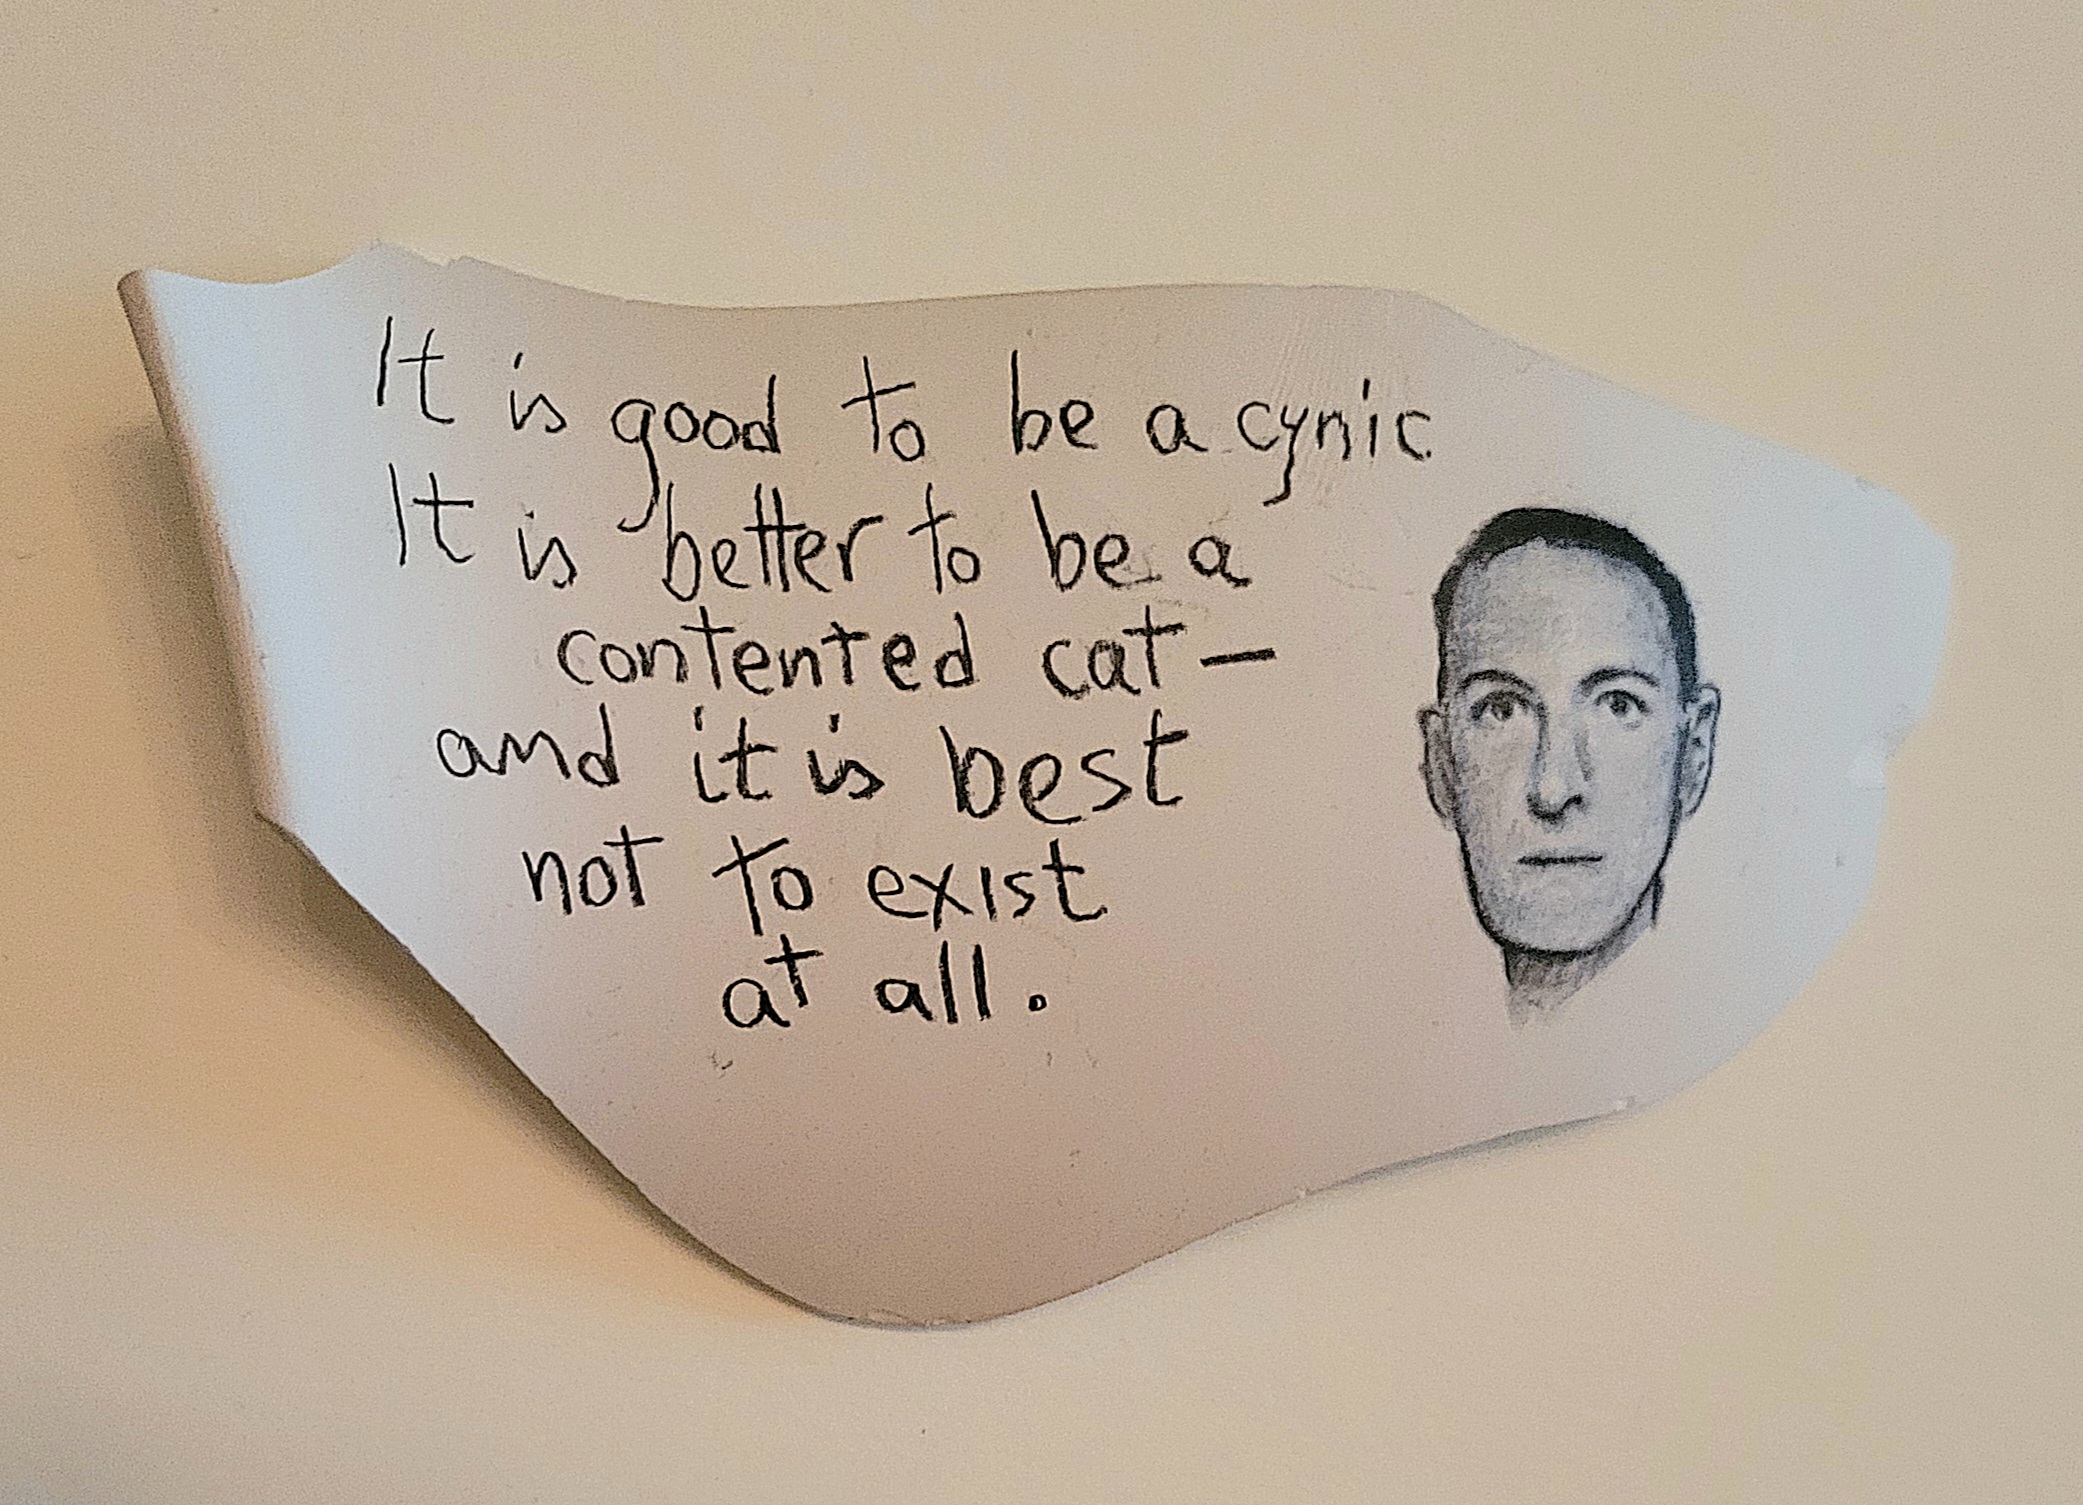 It is good to be a cynic.
It is better to be a
contented cat—
and it is best
not to exist
at all.